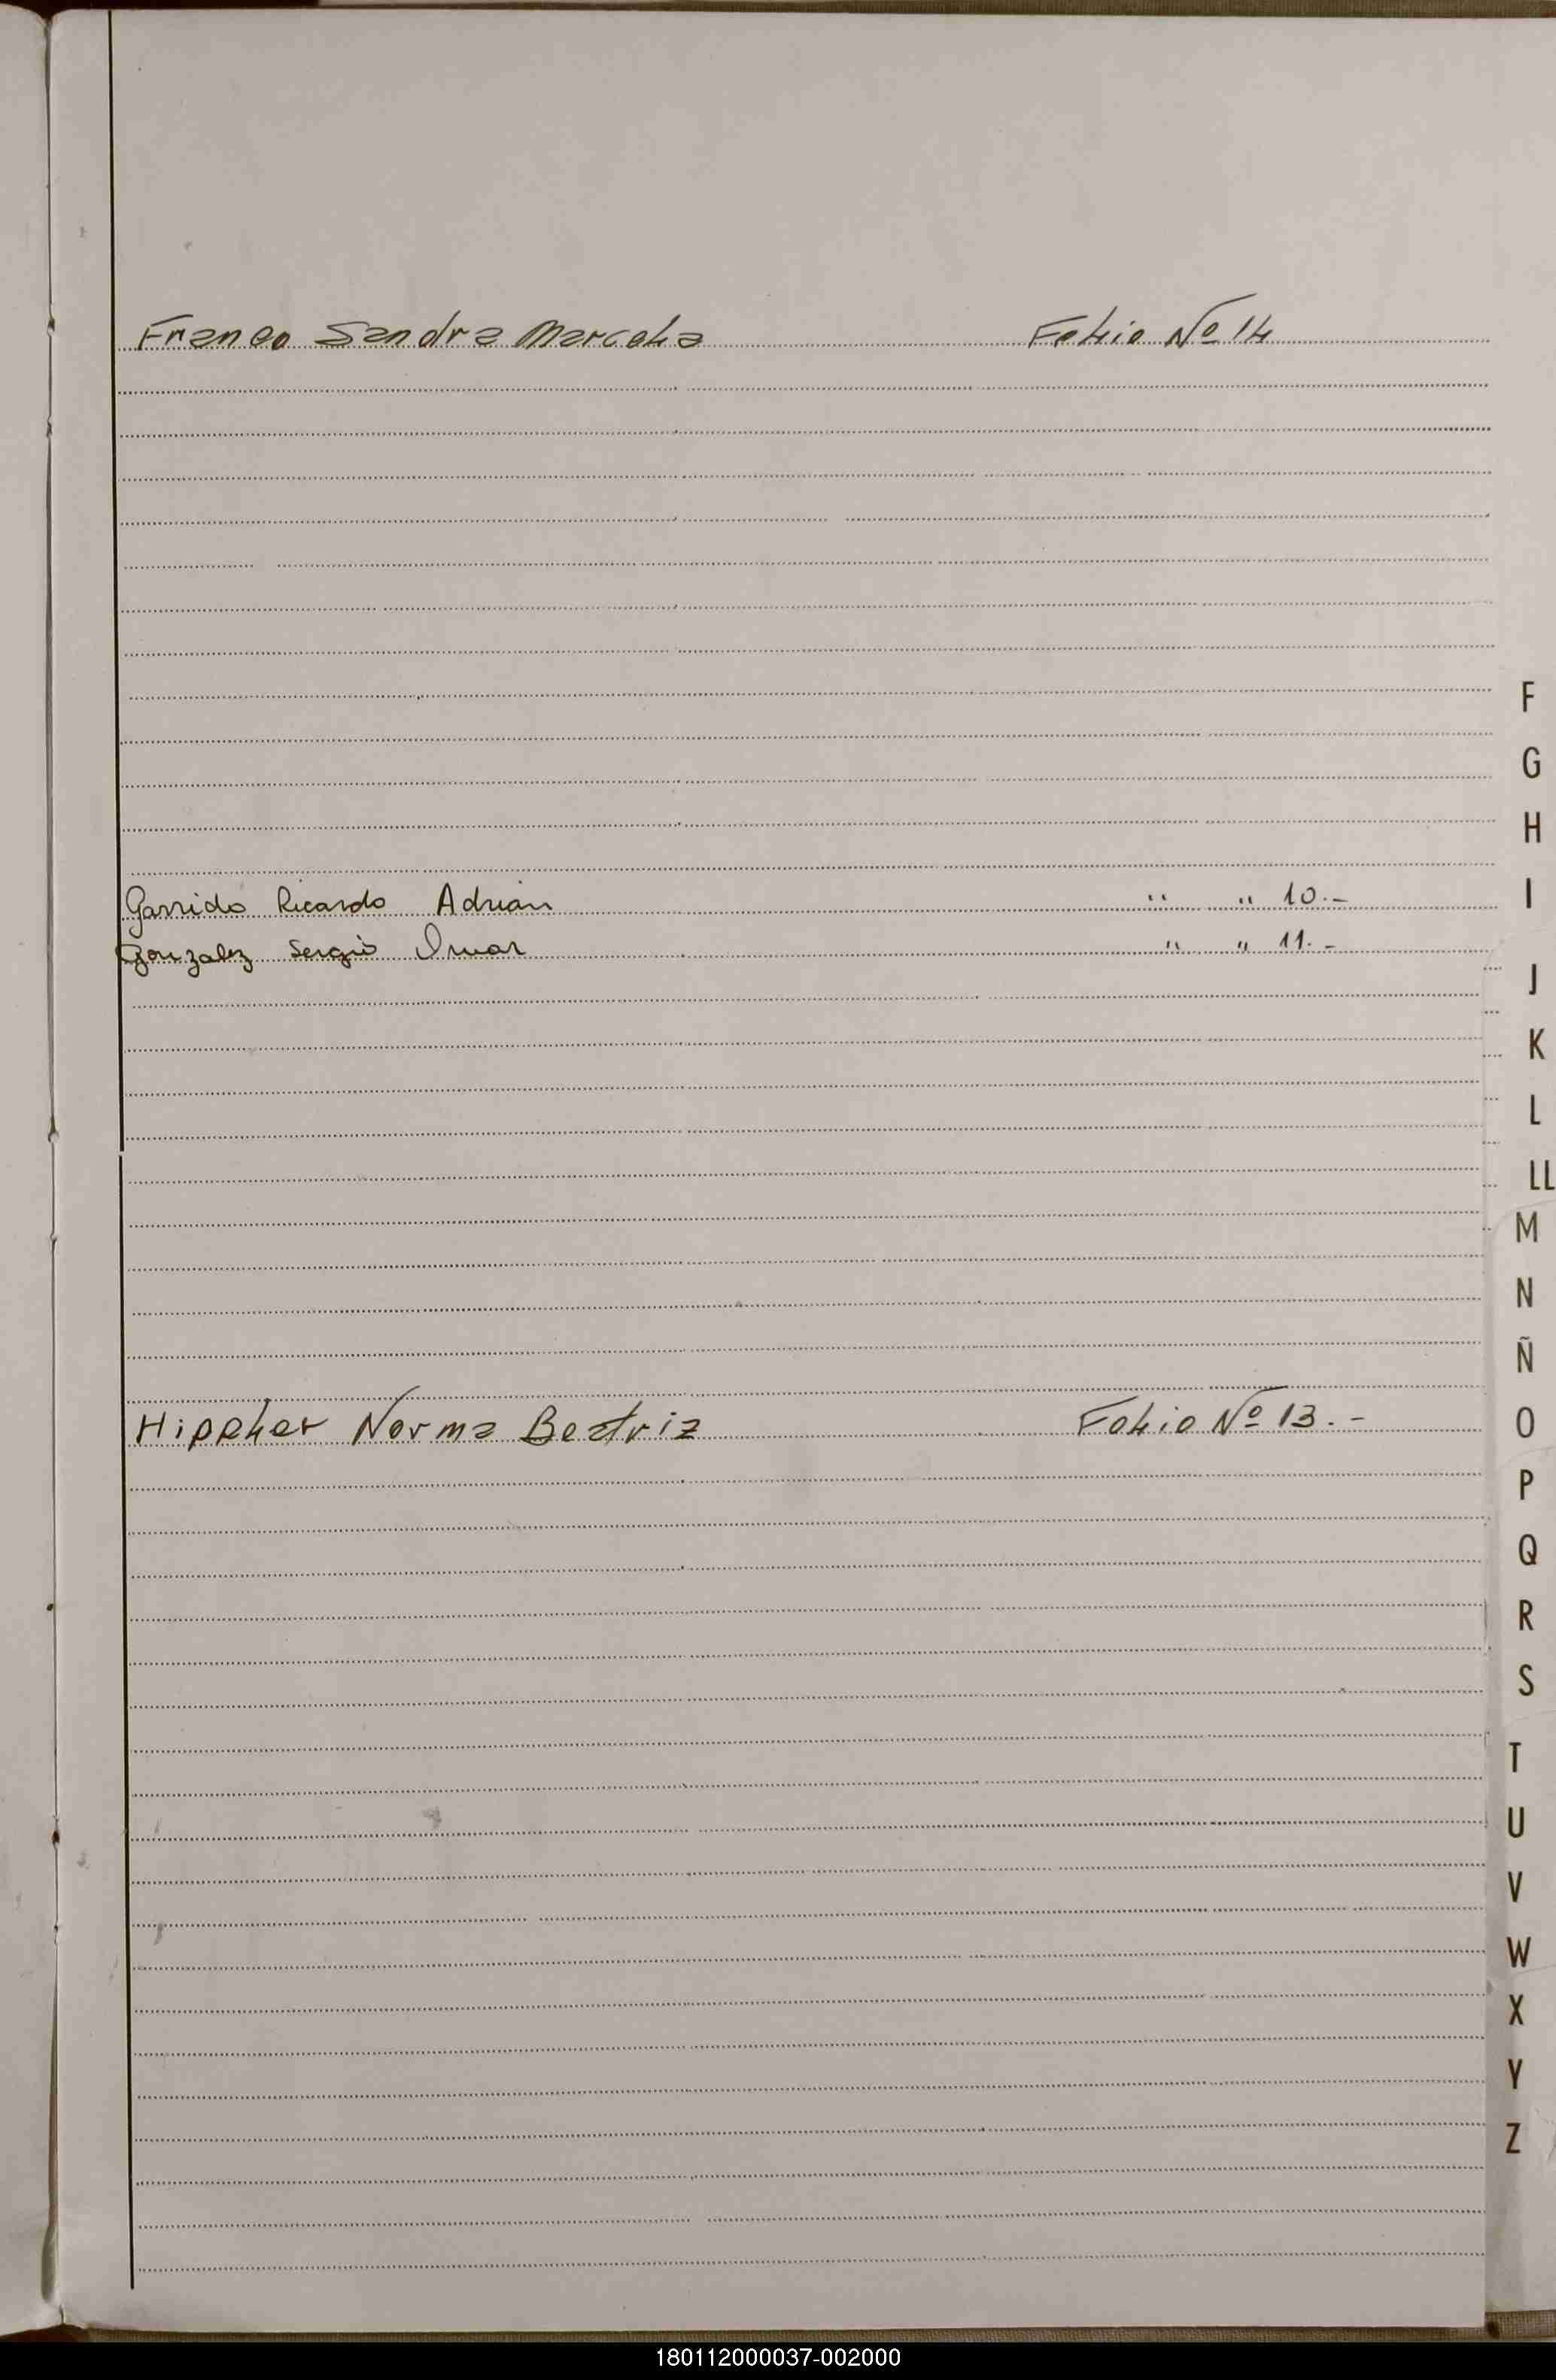 Franco Sandra Marcela Folio Nº 14
F
G
H
Garrido Ricardo Adrián " " 10.-
I
Gonzalez Sergio Omar " " 11.-
J
K
L
LL
M
N
Ñ
Hippler Norma Beatriz Folio Nº 13.-
O
P
Q
R
S
T
U
V
W
X
Y
Z
180112000037-002000